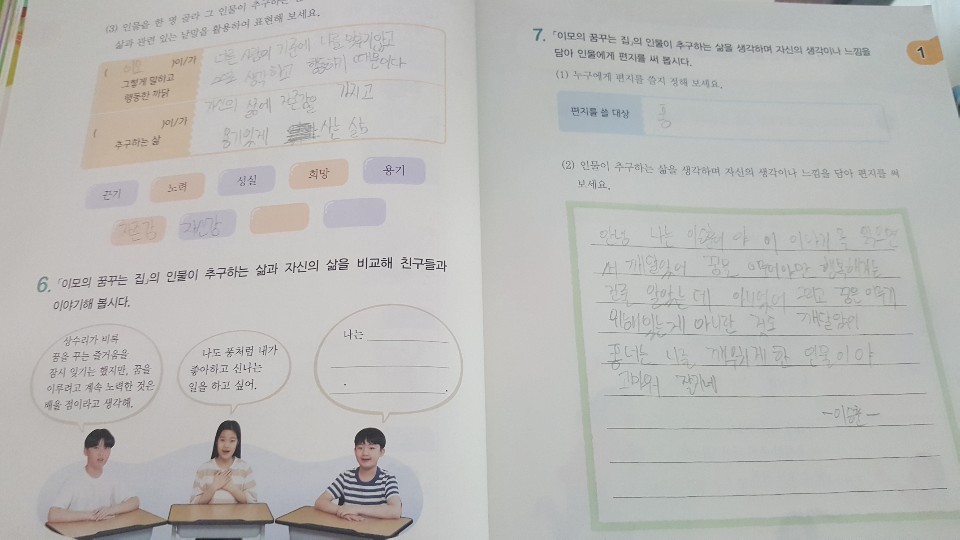 (3) 인물을 한 명 골라 그 인물이 추구하는
삶과 관련 있는 낱말을 활용하여 표현해 보세요.
( 이모 )이/가
그렇게 말하고
행동한 까닭
다른 사람의 기준에 나를 맞추지 않고
스스로 생각하고 때문이다
( )이/가
추구하는 삶
자신의 삶에 자존감을 가지고
용기있게 사는 삶
끈기 노력 성실 희망 용기
자존감 자신감
6. 「이모의 꿈꾸는 집」의 인물이 추구하는 삶과 자신의 삶을 비교해 친구들과
이야기해 봅시다.
상수리가 비록
꿈을 꾸는 즐거움을
잠시 잊기는 했지만, 꿈을
이루려고 계속 노력한 것은
배울 점이라고 생각해.
나도 퐁처럼 내가
좋아하고 신나는
일을 하고 싶어.
나는
.
7. 「이모의 꿈꾸는 집」의 인물이 추구하는 삶을 생각하며 자신의 생각이나 느낌을
담아 인물에게 편지를 써 봅시다.
1
(1) 누구에게 편지를 쓸지 정해 보세요.
편지를 쓸 대상 퐁
(2) 인물이 추구하는 삶을 생각하며 자신의 생각이나 느낌을 담아 편지를 써
보세요.
안녕 나는 야 이 이야기 속 읽으면
서 깨달았어 꿈은 행복해지는
건줄 알았는데 그리고 꿈은
위해있는게 아니란 것도 깨달았어
퐁 너는 나를 깨우치게 한 인물이야
고마워 잘지내